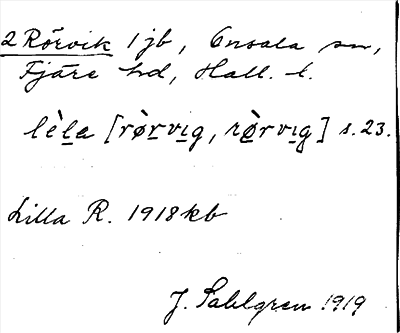 2 Rörvik 1 jb, Onsala sn,
Fjäre hd, Hall. l.
lè̱la [rø̀rvi̱g, rø̱̀rvi̱g] s. 23.
Lilla R. 1918 kb
J. Sahlgren 1919